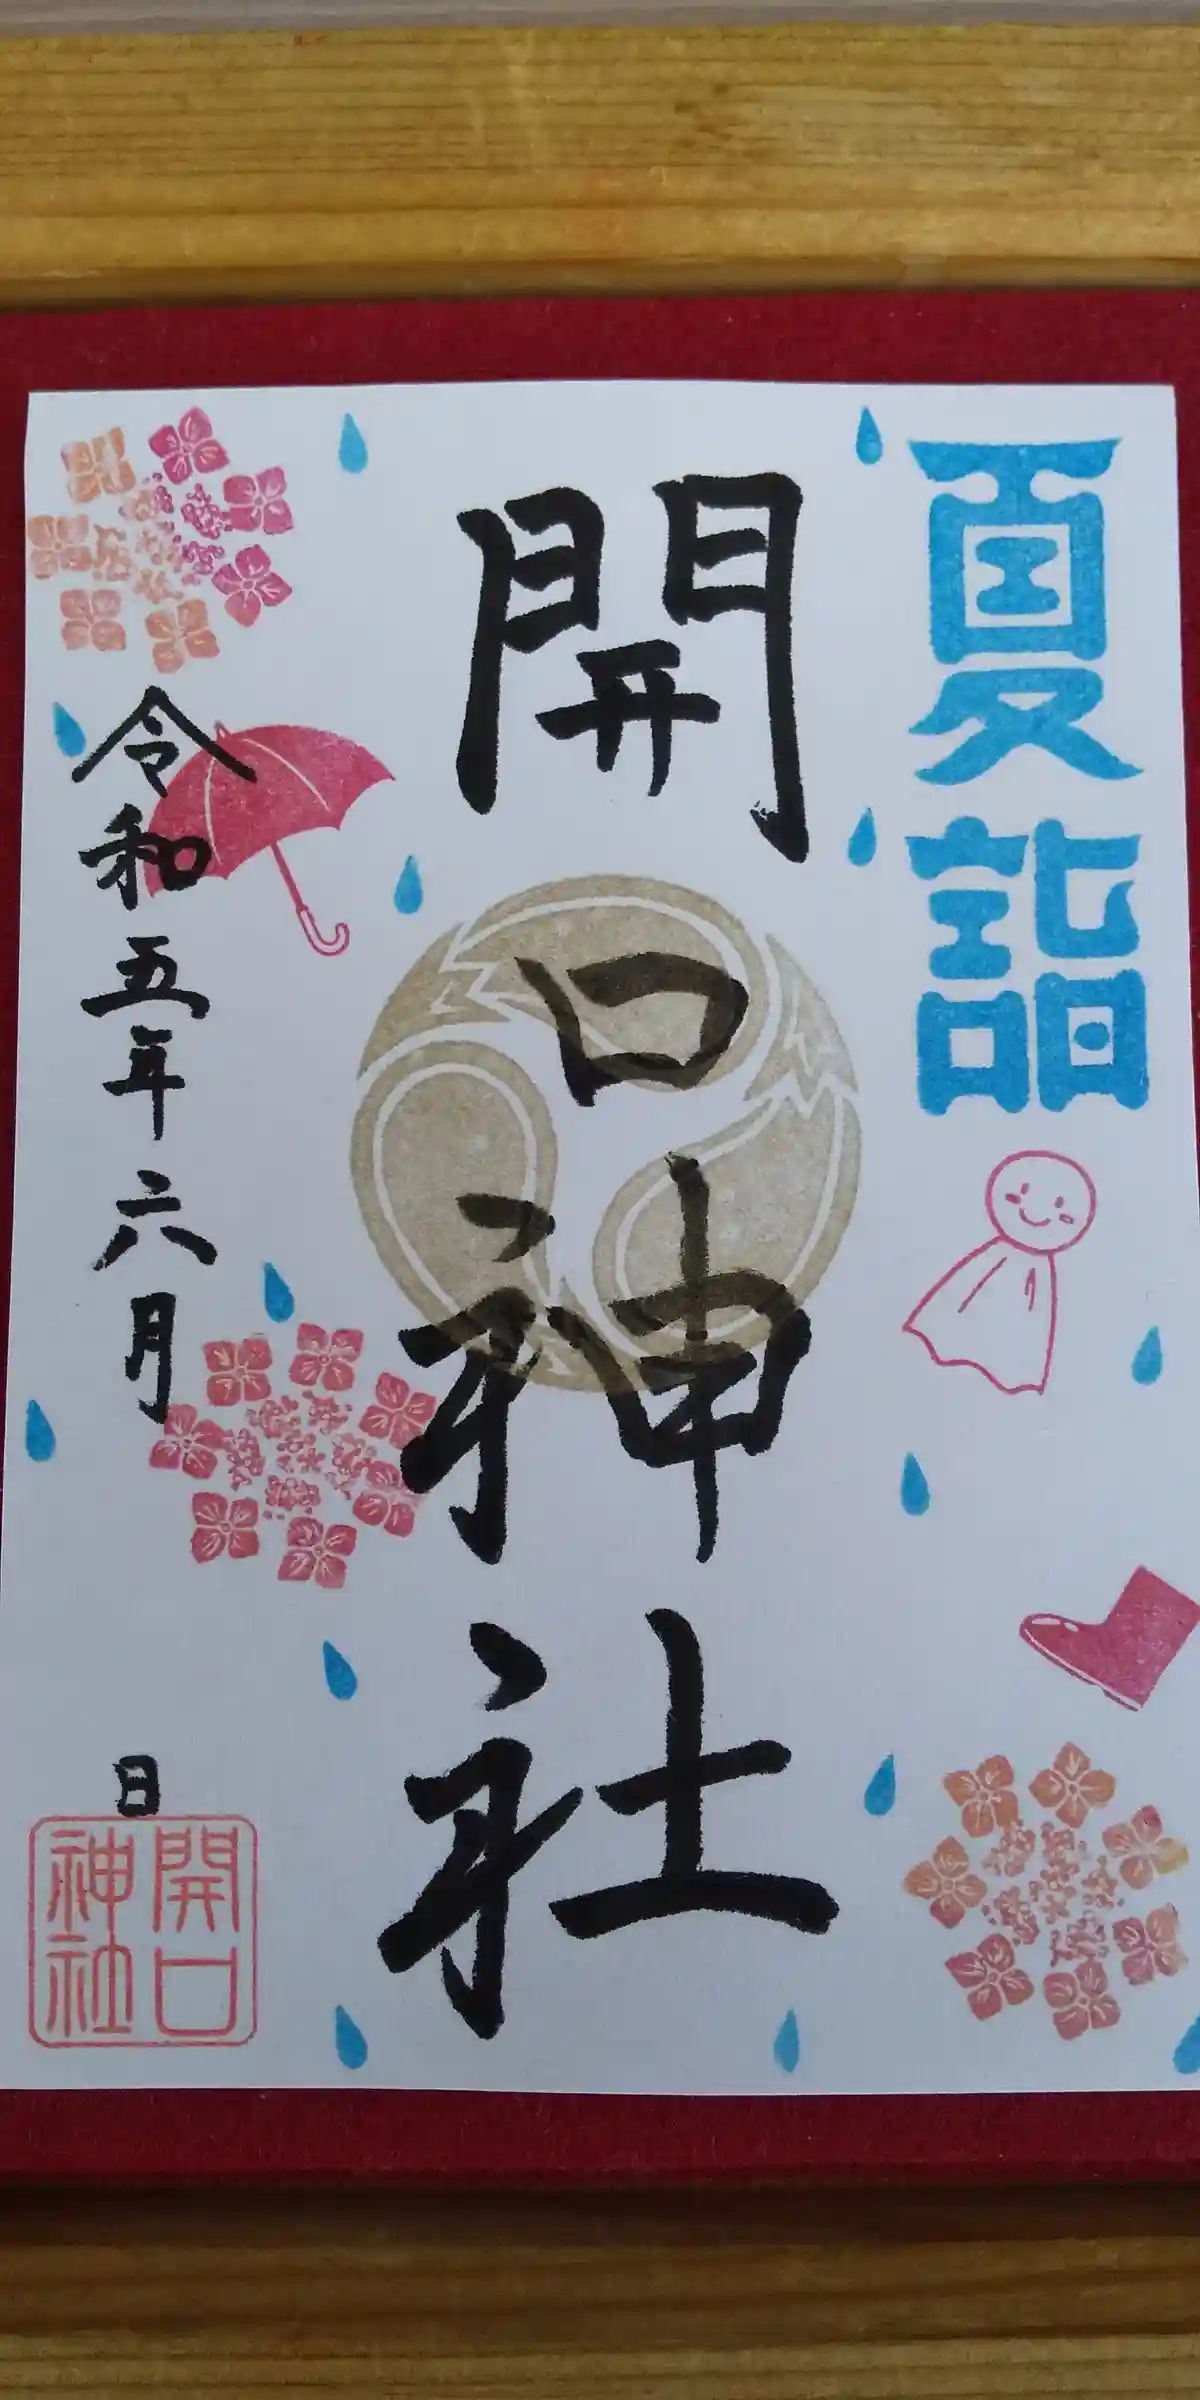 夏詣
開口神社
令和五年六月 日
開口
神社